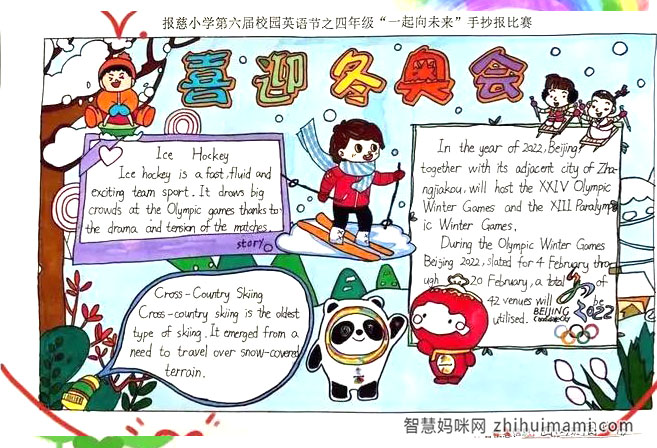 报慈小学第六届校园英语节之四年级“一起向未来”手抄报比赛
喜迎冬奥会
Ice Hockey
Ice hockey is a fast, fluid and
exciting team sport. It draws big
crowds at the Olympic games thanks to
the drama and tension of the matches.
story
In the year of 2022, Beijing
together with its adjacent city of Zha-
ngjiakou, will host the XXIV Olympic
Winter Games and the XIII Paralymp-
ic Winter Games.
During the Olympic Winter Games
Beijing 2022, slated for 4 February thro-
ugh 20 February, a total of
42 venues will be
utilised.
BEIJING 2022
Candidate City
Cross-Country Skiing
Cross-country skiing is the oldest
type of skiing. It emerged from a
need to travel over snow-covered
terrain.
智慧妈咪网 zhihuimami.com